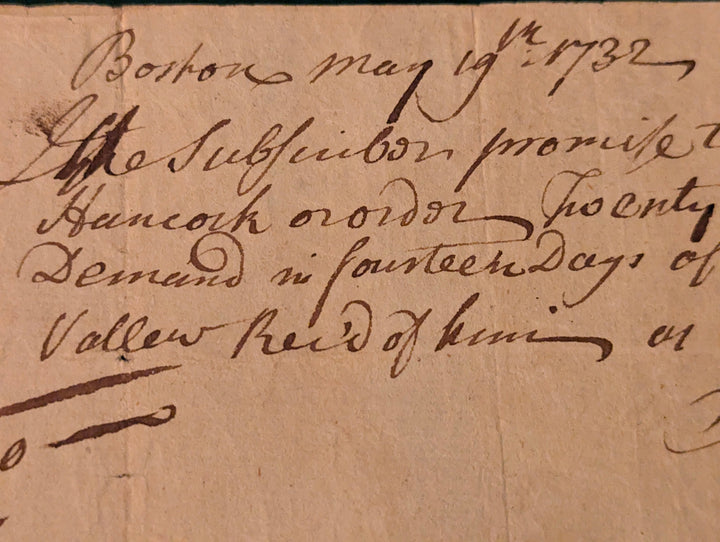 Boston May 19th: 1732
I the Subscriber promise t
Hancock or order Twenty
Demand in fourteen Days of
Vallew Rec'd of him as
0